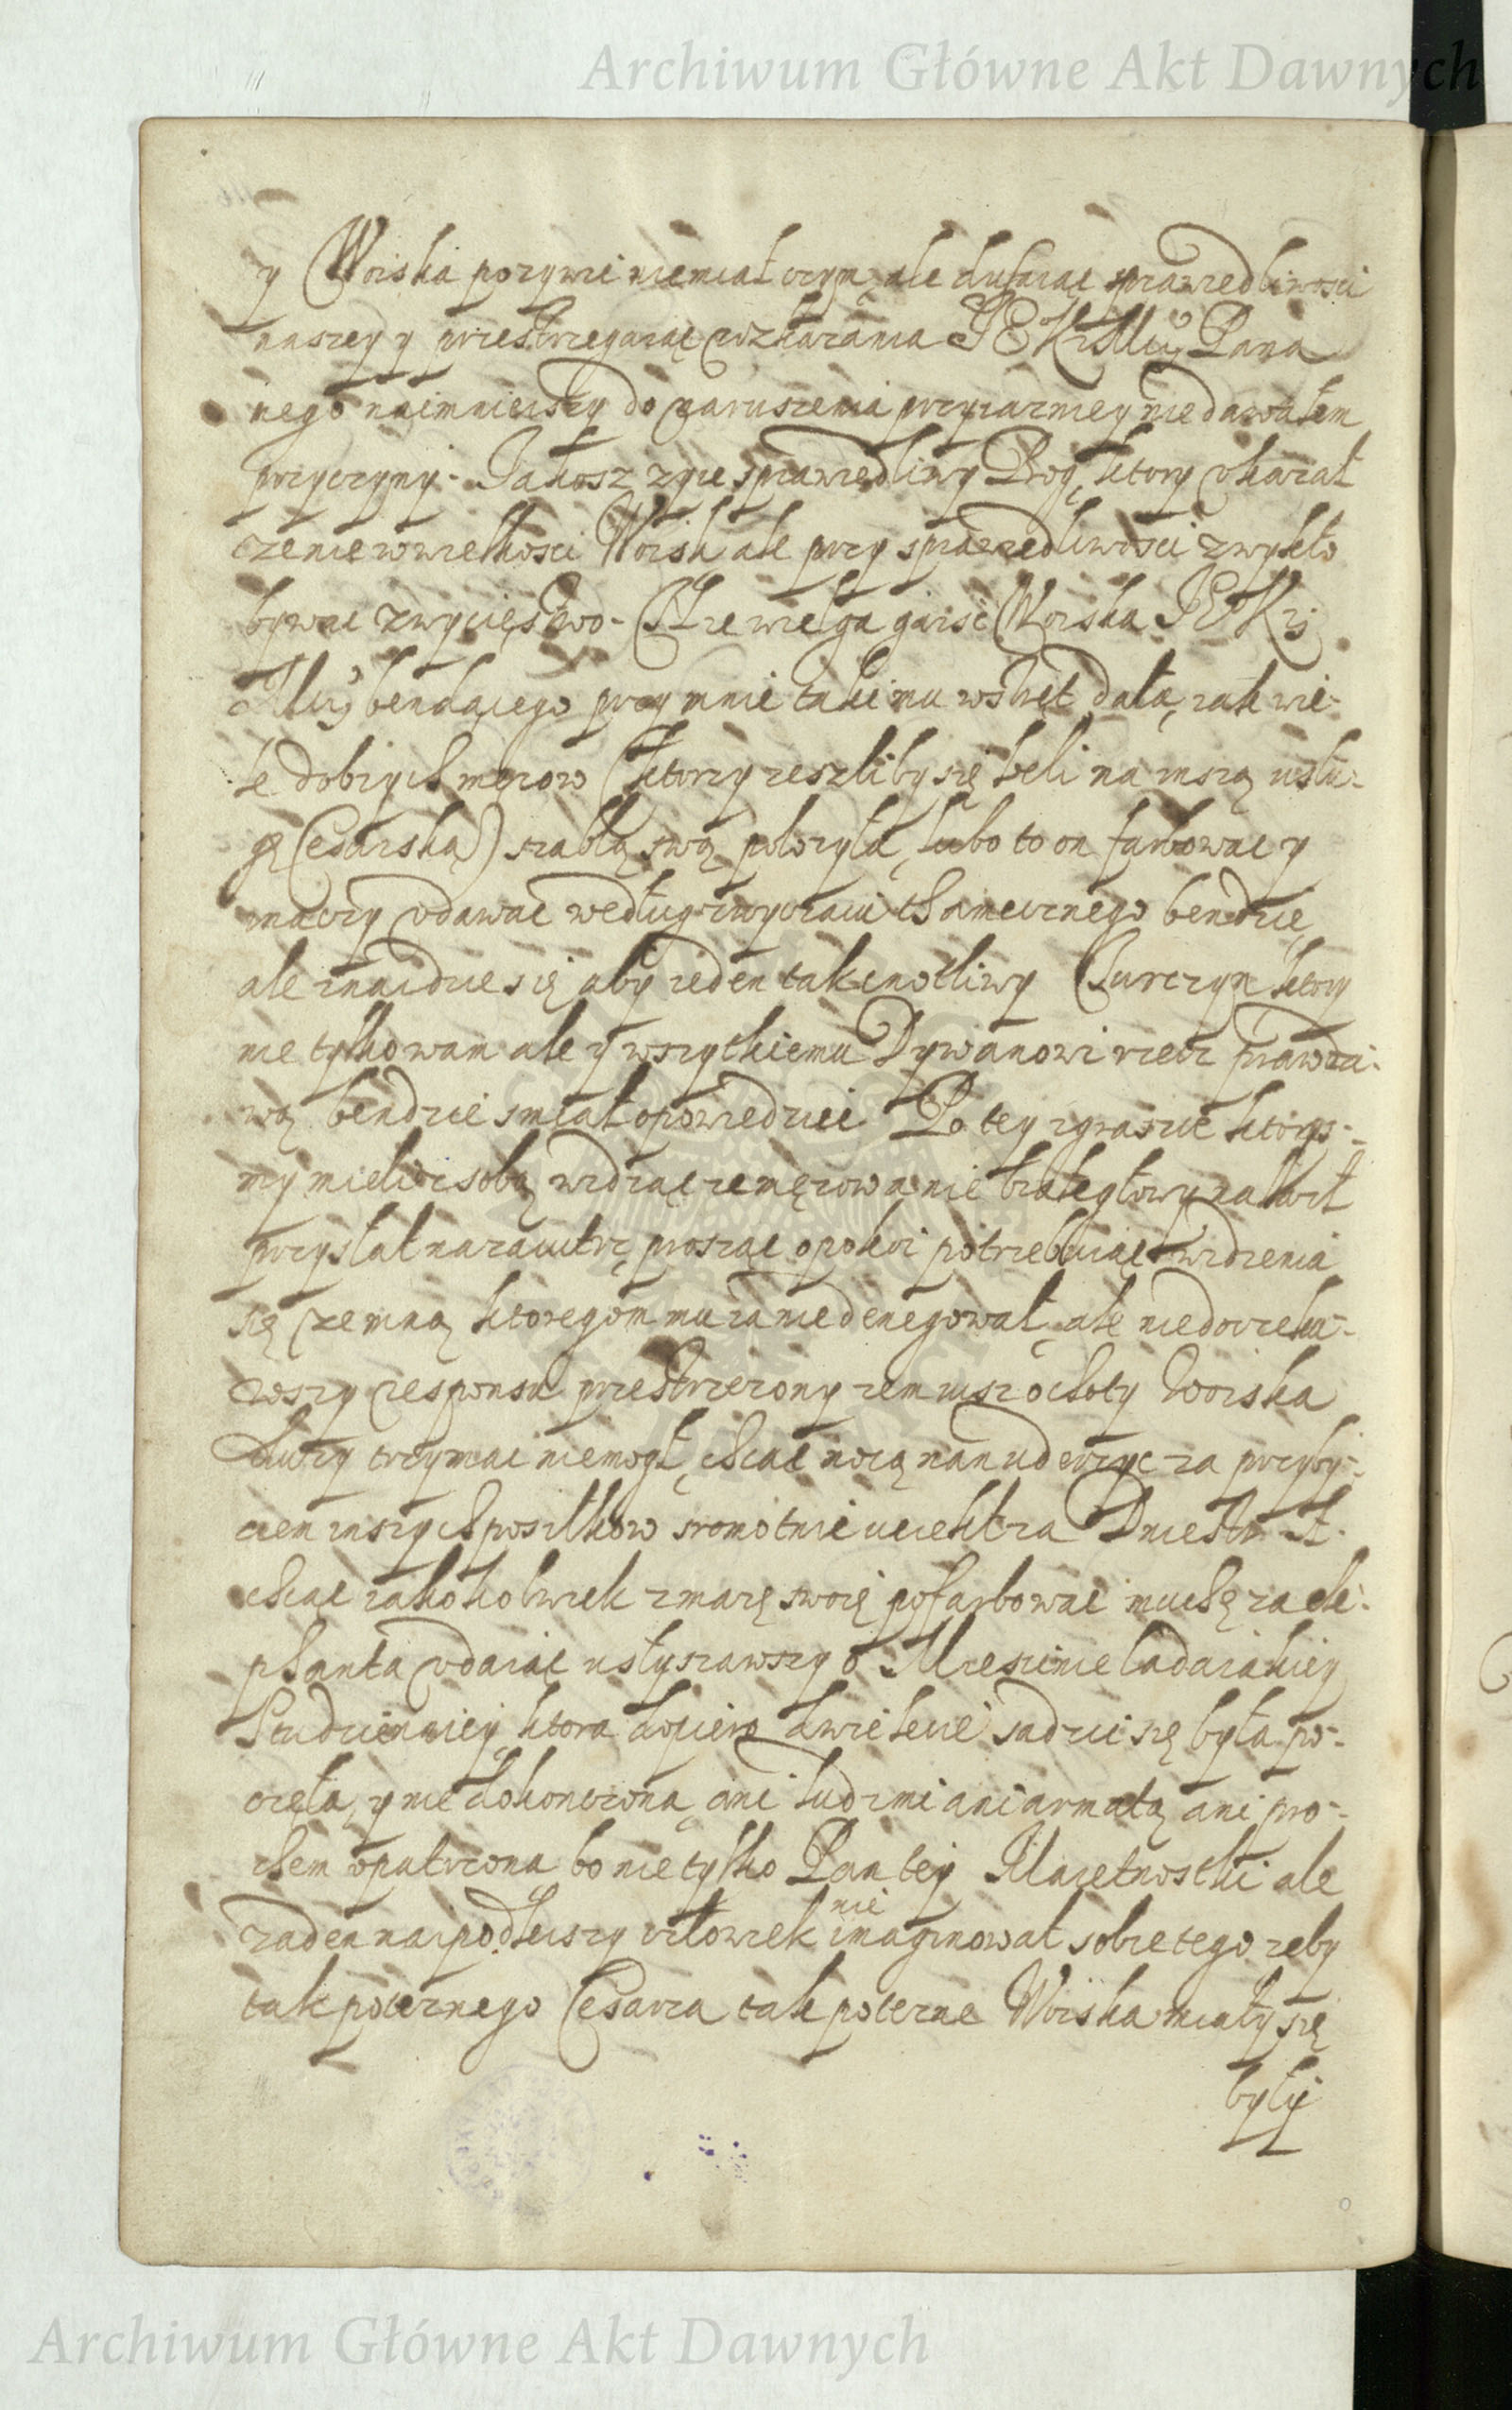 Archiwum Główne Akt Dawnych
y Woiska pozywić niemiał czym, ale dufaiąc sprawiedliwosci
naszey y przestrzegaiąc rozkazania JEKrMci Pana
mego naimnieiszy do naruszenia przyiazniey nie dawałem
przyczyny. Jakosz zyie sprawiedliwy Bog, ktory okazał
ze nie w wielkosci Woisk ale przy sprawiedliwosci zwykło
bywac zwyciestwo. Ze wielga garść Woiska JEKrj
Mci bendącego przy mnie takimu wstręt dała, iak wie-
le dobrych męzow (ktorzy zeszliby się beli na inszą usłu-
gę Cesarską) szablą swą położyła, lubo to on farbować y
inaczy udawać według zwyczaiu chamecznego bendzie,
ale znaidzie się aby ieden tak cnotliwy Turczyn ktory
nie tylko wam ale y wszytkiemu Dywanowi rzecz prawdzi-
wą bendzie smiał opowiedzieć. Po tey igraszce ktorąs-
my mieli z sobą, widząc ze męzowa nie białegłowy na hart
przysłał nazaiutrz prosząc o pokoi potrzebuiąc widzenia
się zemną, ktoregom mu ia nie denegował, ale niedoczeka-
wszy responsu przestrzezony zem iusz ochoty Woiska
dłuzy trzymac niemogł, chcąc nocą nan uderzyc za przyby-
ciem inszych posiłkow sromotnie uciekł za Dniestr. A
chcąc iakokolwiek zmazę swoię pofarbować muchę za ele-
phanta udaiąc usłyszawszy o Miescinie ladaiakiey
Studzienniey, ktora dopiero dwie lecie sadzić się była po-
częła, y nie dokonczona, ani ludzmi ani armatą ani pro-
chem opatrzona, bo nie tylko Pan tey Maiętnostki ale
zaden naipodleiszy człowiek nie imaginował sobie tego, zeby
tak potęznego Cesarza tak potezne Woiska miały się
były
Archiwum Główne Akt Dawnych